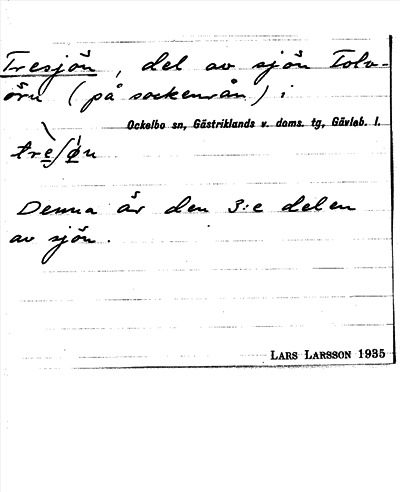 Tresjön, del av sjön Tolv-
öru (på sockenrån) i
Ockelbo sn, Gästriklands v. doms. tg, Gävleb. l.
Denna är den 3:e delen
av sjön.
LARS LARSSON 1935